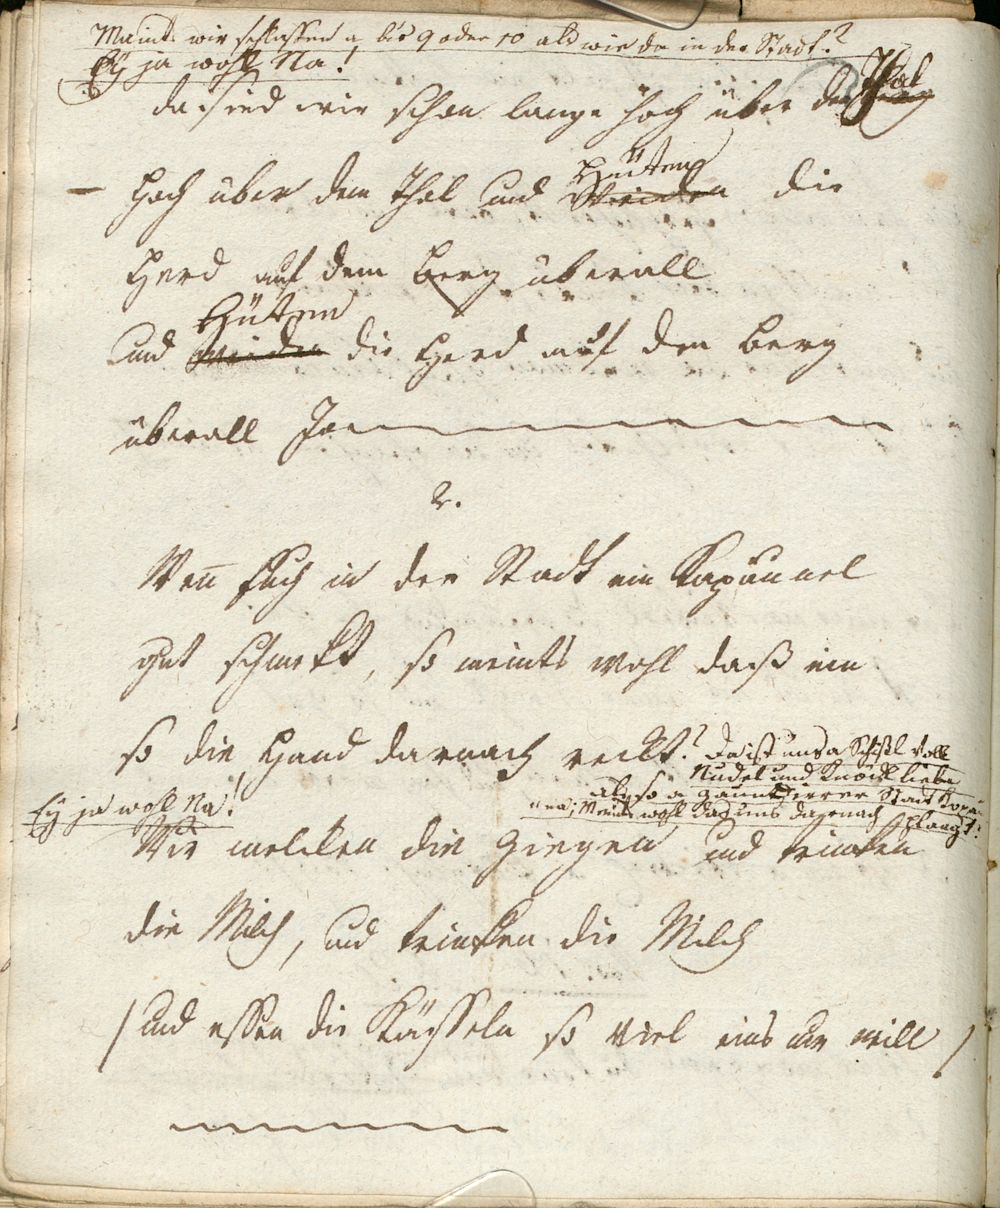 Maints wir schlaffen a bis 9 oder 10 als wie da in der Stadt?
Ey ja wohl Na!
da sind wir schon lange hoch über dem Thal
hoch über dem Thal und Hüten die
Weiden
Herd auf dem berg überall
Hüten
und Weiden die Herd auf dem berg
überall Jo
2.
Wen̄ Euch in der Stadt ein Kapaunel
gut schmekt, so meints wohl daß ein
so die Hand darnach reckt? Da ist uns a Schißl voll
Nudel und Knödl lieber
als so a
Stadt
Ey ja wohl Na!
Meints wohl daß uns darnach
Wir melcken die Ziegen und trinken
die Milch, und trinken die Milch
/ und essen die Kässeln so viel eins nur will /